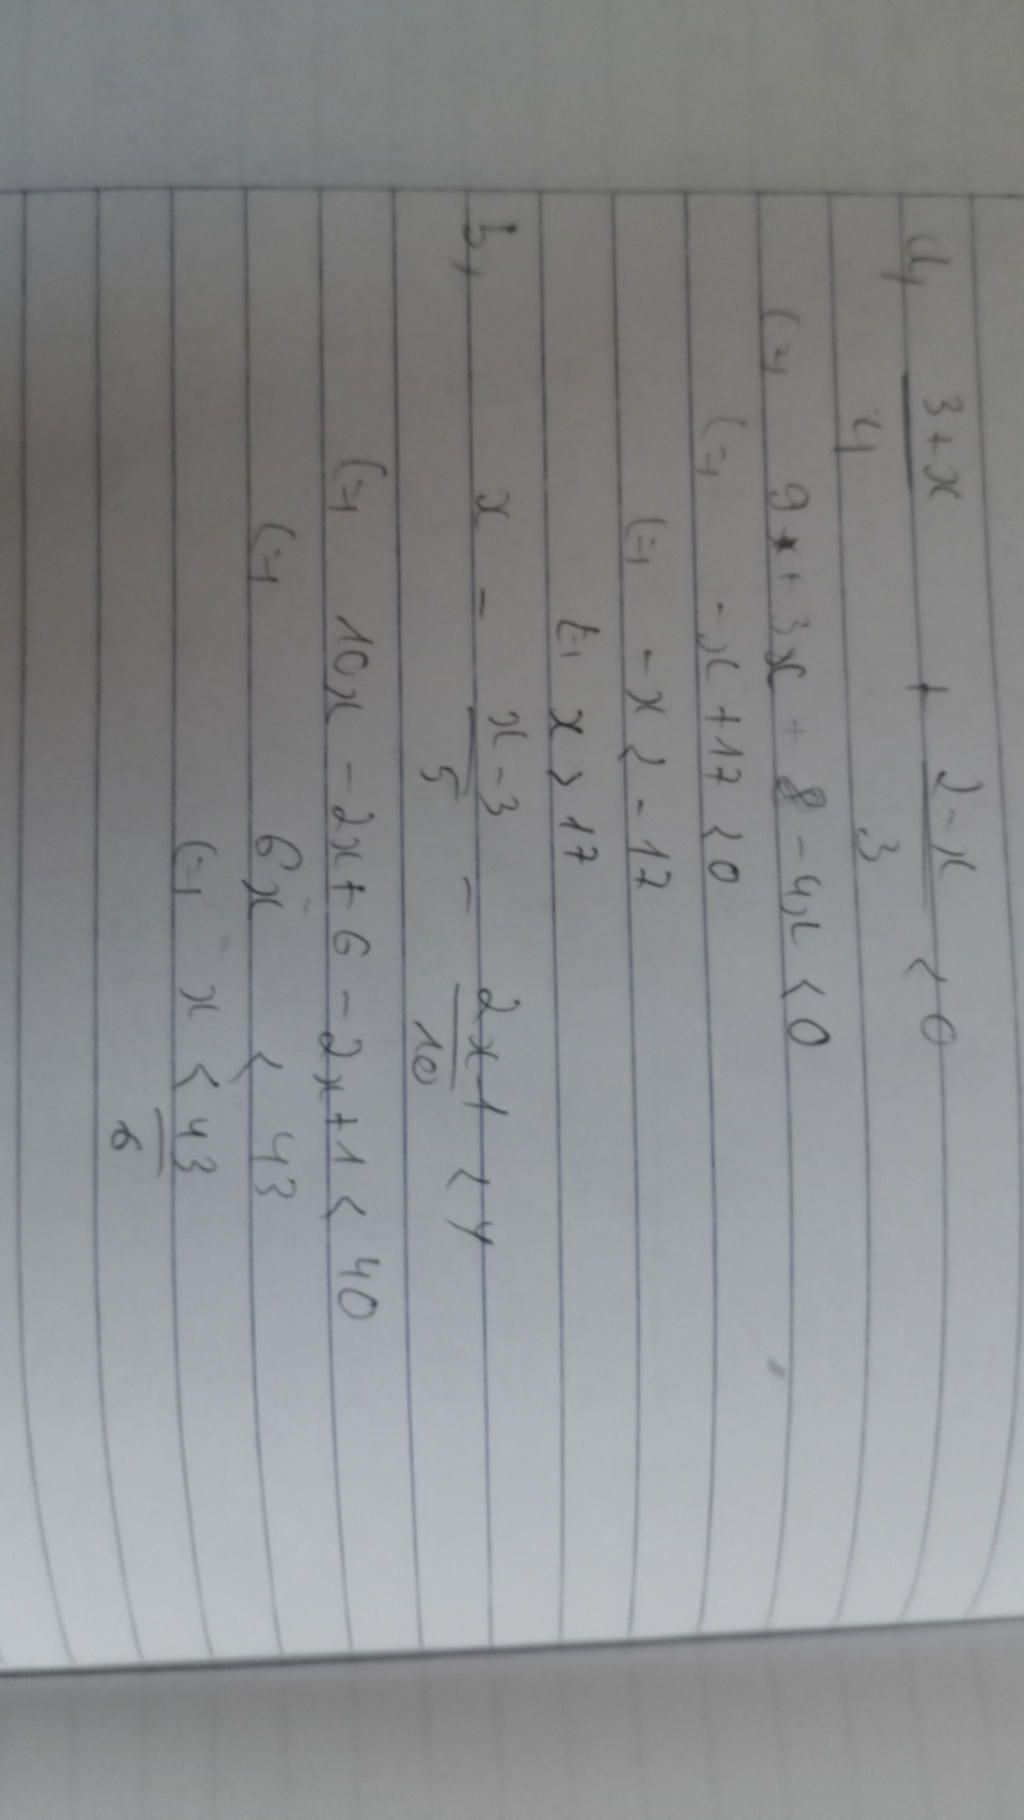 a, 3+x/4 + 2-x/3 < 0
(=) 9+3x + 8-4x < 0
(=) -x+17 < 0
(=) -x < -17
(=) x > 17
b, x - x-3/5 - 2x-1/10 < 4
(=) 10x - 2x + 6 - 2x + 1 < 40
(=) 6x < 43
(=) x < 43/6